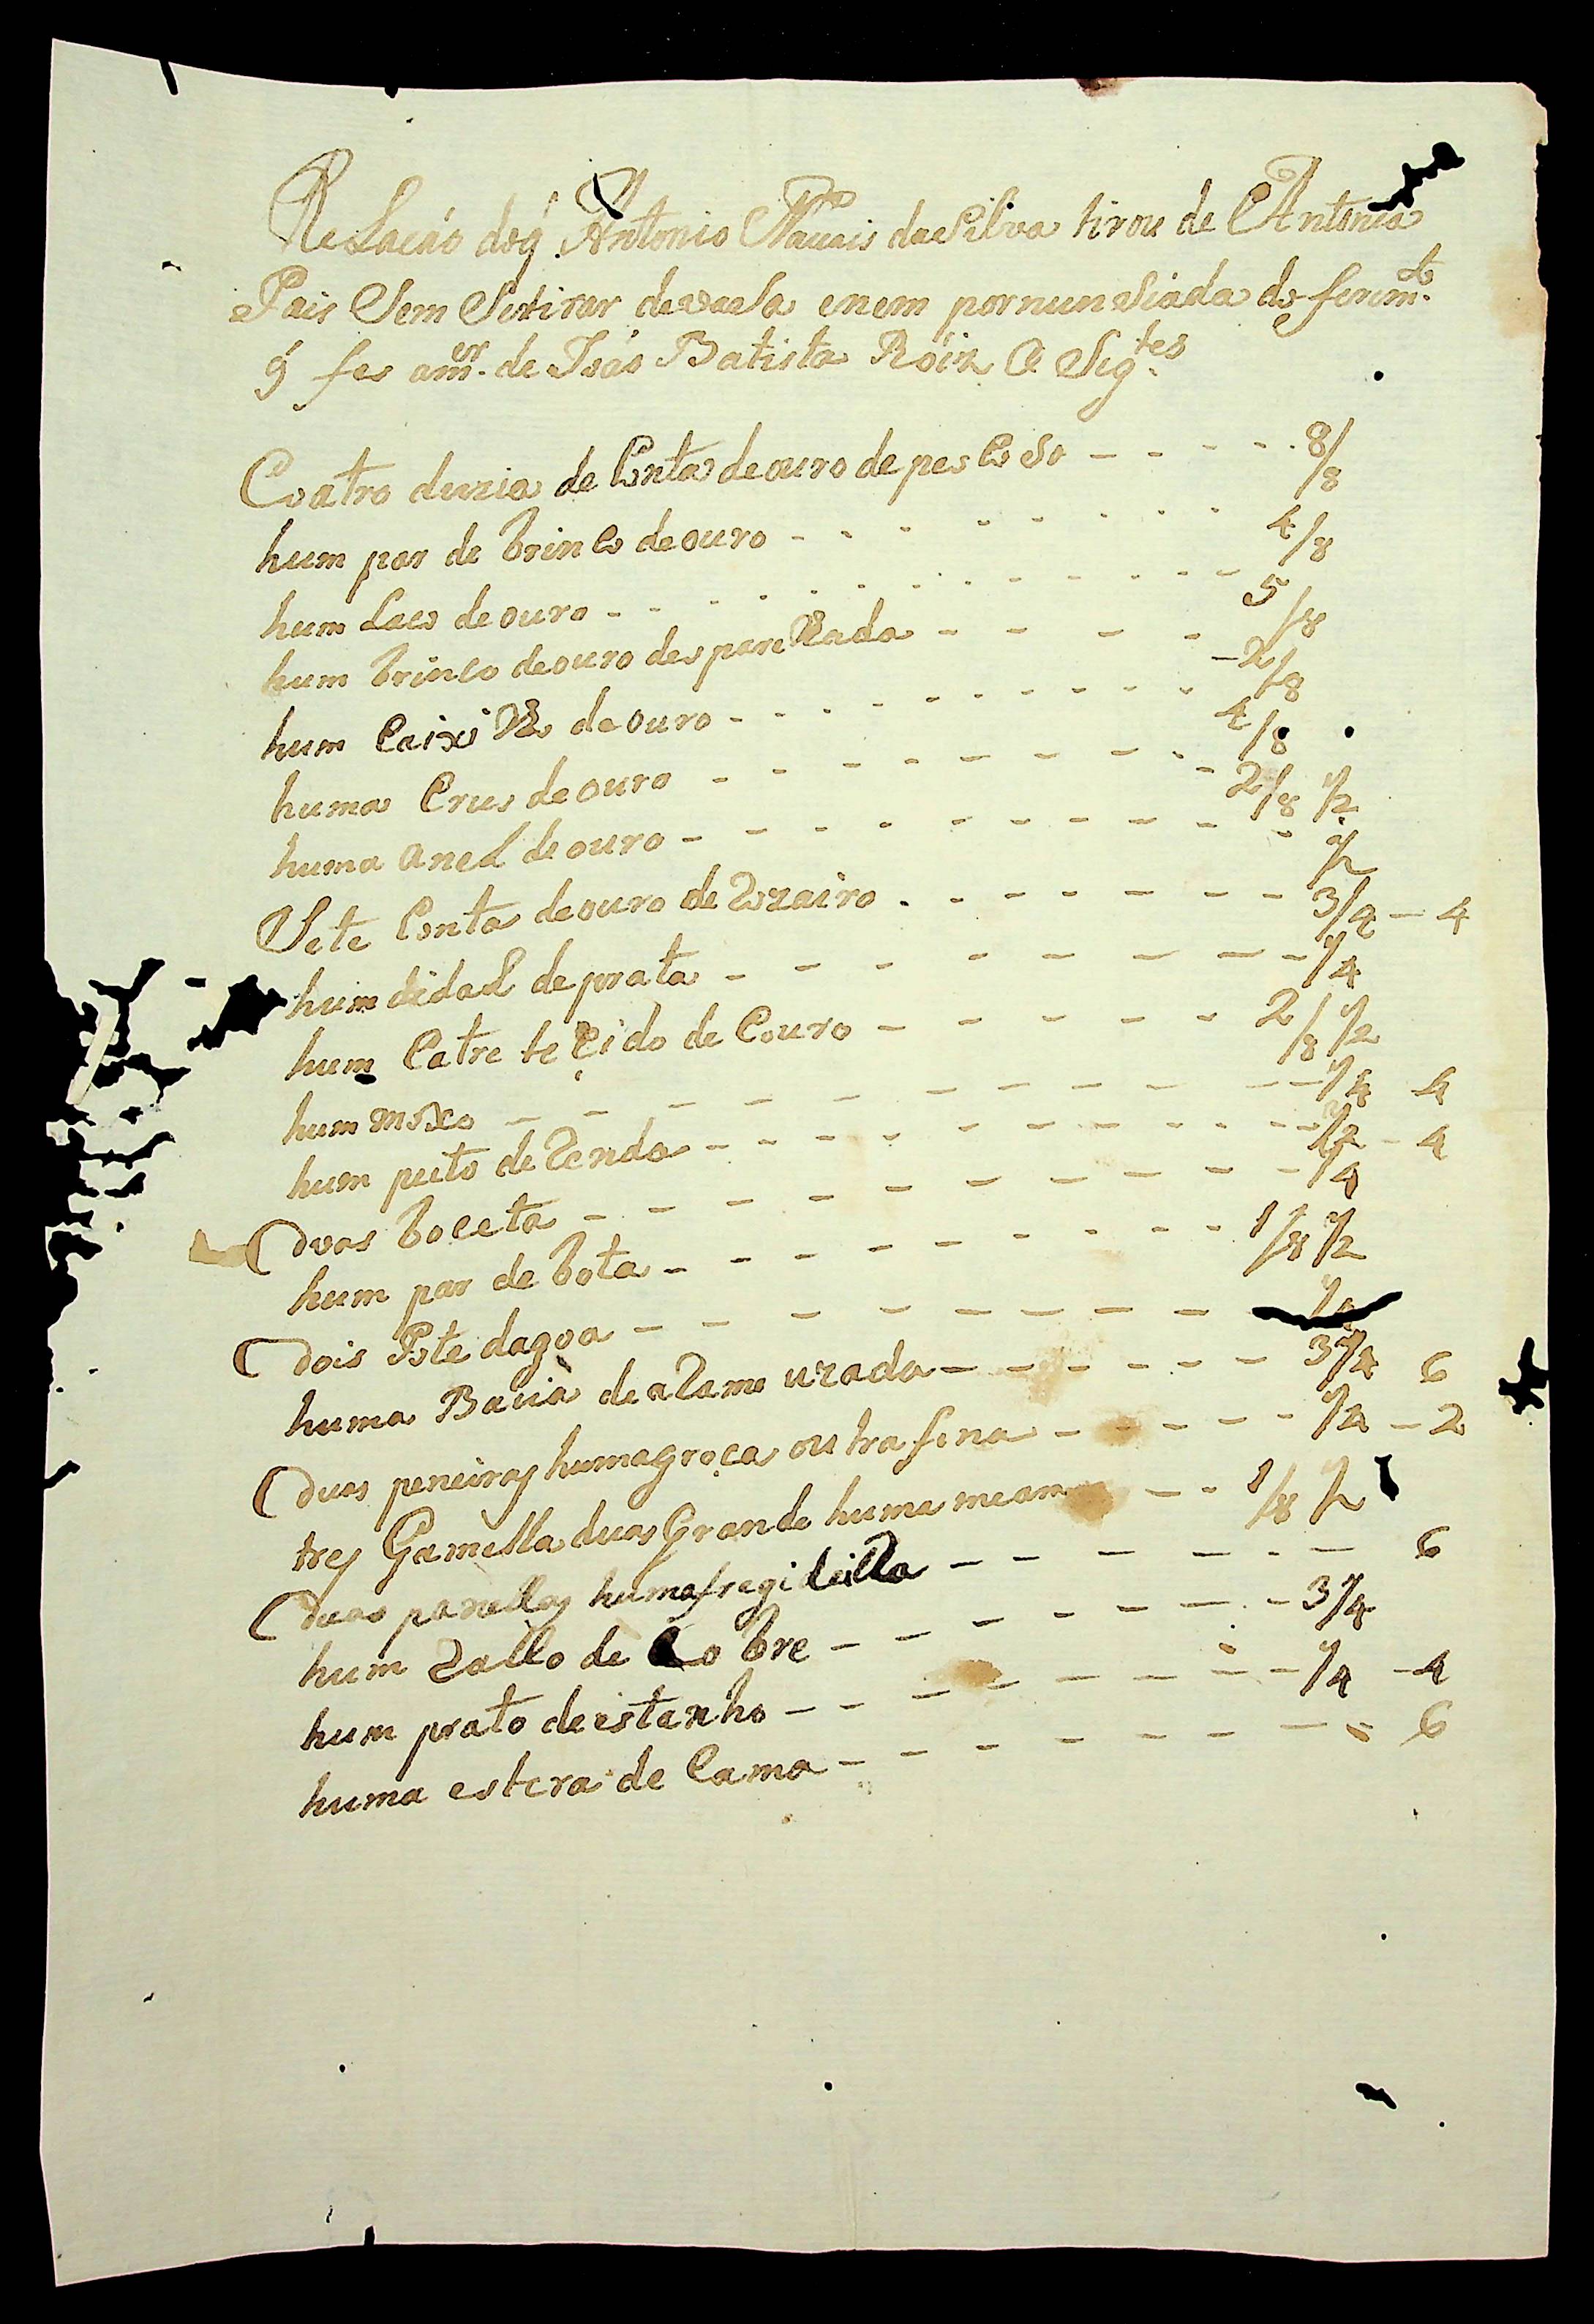 Relacão doq̃ Antonio Navais da Silva tirou de Antonia
Pais Sem Setirar devasa enem pornunsiada do ferim.to
q̃ fes am.er de Joáo Batista Roiz O Sig.tes
Coatro duzia de Conta de ouro de pescoso - - - - - 8/8
hum par de brinco de ouro - - - - - - - - 4/8
hum Laco de ouro - - - - - - - - - - - - 5/8
hum brinco de ouro desparelhada - - - - - 2/8
hum Caixilho de ouro - - - - - - - - 4/8
huma Crus de ouro - - - - - - - - - 2/8 1/2
huma anel de ouro - - - - - - - - - - 1/2
Sete Conta de ouro de Rozairo - - - - - - - 3/4 - 4
hum didal de prata - - - - - - - - 1/4
hum Catre tecido de Couro - - - - - 2/8 1/2
hum moxo - - - - - - - - - - 1/4 4
hum peito de Renda - - - - - - - - - - 1/2 - 4
duas boceta - - - - - - - - - - 1/4
hum par de bota - - - - - - - - - 1/8 1/2
dois Pote dagoa - - - - - - - -
huma Bacia de arame uzada - - - - - - 3/4 6
duas peneiras huma groça outra fina - - - - - 1/4 - 2
tres Gamella duas Grande huma meam - - 1/8 1/2
duas panellas huma fregideilla - - - - - - 6
hum Rallo de Cobre - - - - - - - - 3/4
hum prato de istanho - - - - - - - - 1/4 - 4
huma estera de Cama - - - - - - - - 6